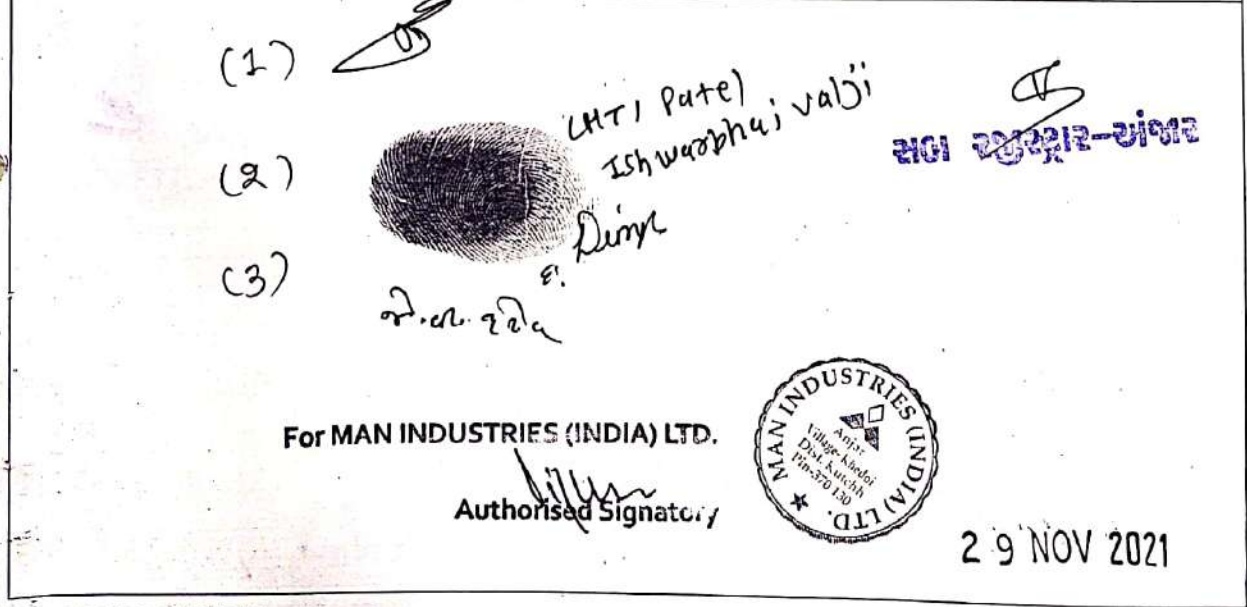 (1)
(2)
LHTI Patel
Ishwarbhai valji
સબ રજીસ્ટ્રાર-અંજાર
(3)
For MAN INDUSTRIES (INDIA) LTD.
Authorised Signatory
MAN INDUSTRIES (INDIA) LTD.
Anjar
Village-Khedoi
Dist. Kutchh
Pin-370 130
29 NOV 2021